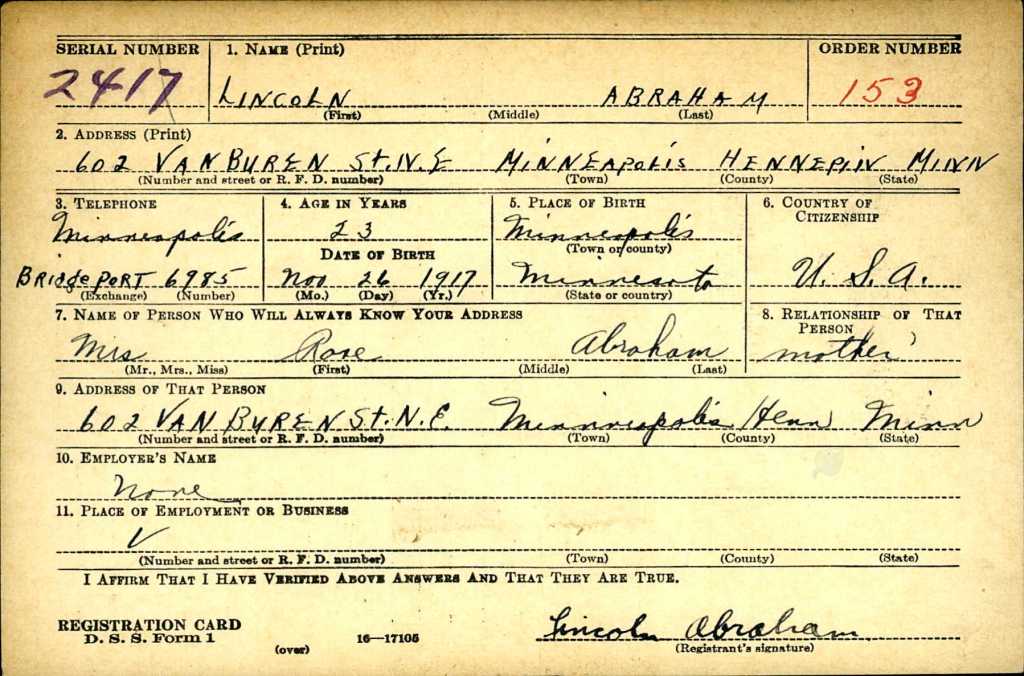 SERIAL NUMBER 1. NAME (Print) ORDER NUMBER
2417 LINCOLN ABRAHAM 153
(First) (Middle) (Last)
2. ADDRESS (Print)
602 VAN BUREN St. N.E MINNEAPOLIS HENNEPIN MINN
(Number and street or R. F. D. number) (Town) (County) (State)
3. TELEPHONE 4. AGE IN YEARS 5. PLACE OF BIRTH 6. COUNTRY OF CITIZENSHIP
Minneapolis 23 Minneapolis
DATE OF BIRTH (Town or county)
BRIDGEPORT 6985 Nov 26 1917 Minnesota U. S. A.
(Exchange) (Number) (Mo.) (Day) (Yr.) (State or country)
7. NAME OF PERSON WHO WILL ALWAYS KNOW YOUR ADDRESS 8. RELATIONSHIP OF THAT PERSON
Mrs Rose Abraham mother
(Mr., Mrs., Miss) (First) (Middle) (Last)
9. ADDRESS OF THAT PERSON
602 VAN BUREN St. N.E. Minneapolis Henn Minn
(Number and street or R. F. D. number) (Town) (County) (State)
10. EMPLOYER'S NAME
None
11. PLACE OF EMPLOYMENT OR BUSINESS
(Number and street or R. F. D. number) (Town) (County) (State)
I AFFIRM THAT I HAVE VERIFIED ABOVE ANSWERS AND THAT THEY ARE TRUE.
REGISTRATION CARD
D. S. S. Form 1 16—17105 Lincoln Abraham
(over) (Registrant's signature)